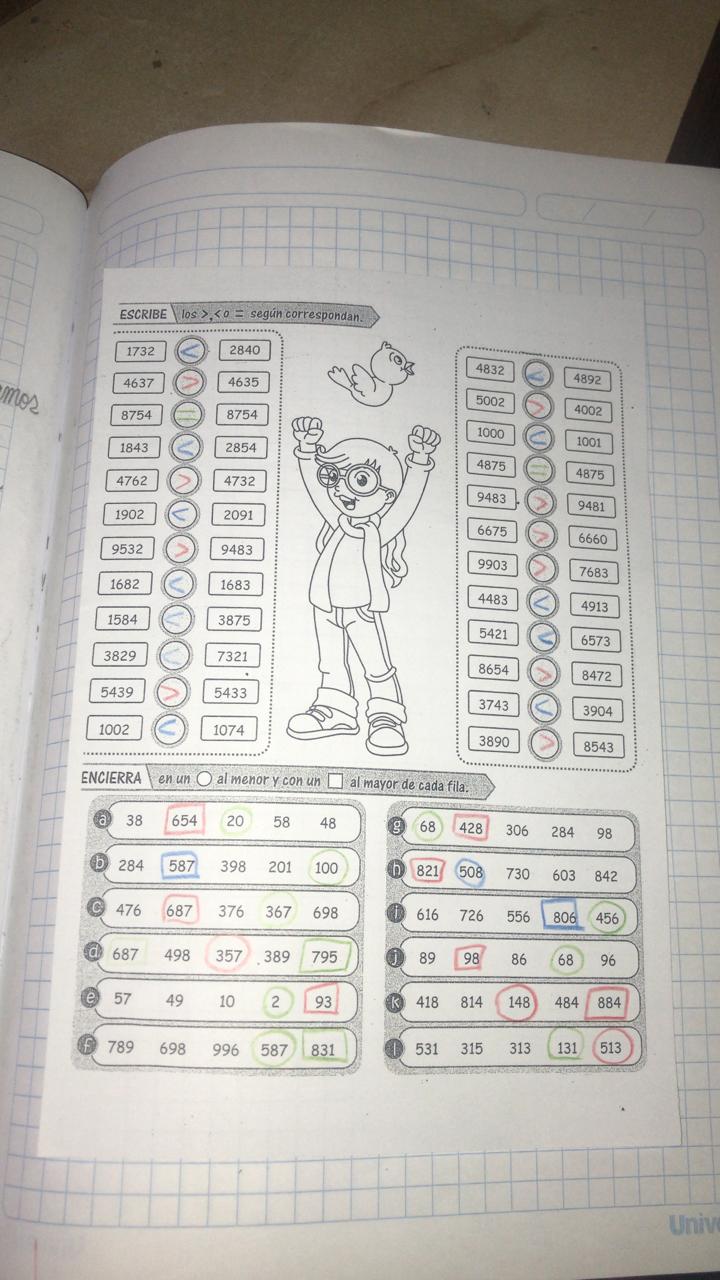 ESCRIBE los >, < o = según correspondan.
1732 < 2840
4637 > 4635
8754 = 8754
1843 < 2854
4762 > 4732
1902 < 2091
9532 > 9483
1682 < 1683
1584 < 3875
3829 < 7321
5439 > 5433
1002 < 1074
4832 < 4892
5002 > 4002
1000 < 1001
4875 = 4875
9483 > 9481
6675 > 6660
9903 > 7683
4483 < 4913
5421 < 6573
8654 > 8472
3743 < 3904
3890 > 8543
ENCIERRA en un al menor y con un al mayor de cada fila.
a 38 654 20 58 48
b 284 587 398 201 100
c 476 687 376 367 698
d 687 498 357 389 795
e 57 49 10 2 93
f 789 698 996 587 831
g 68 428 306 284 98
h 821 508 730 603 842
i 616 726 556 806 456
j 89 98 86 68 96
k 418 814 148 484 884
l 531 315 313 131 513